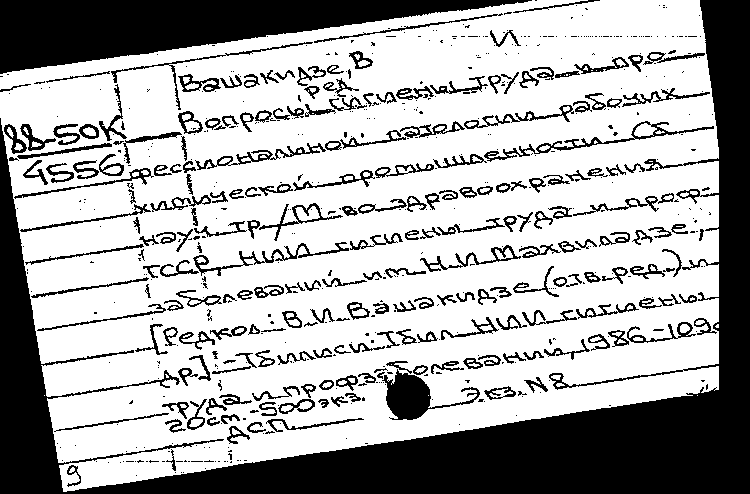 И
Вашакидзе, В
ред
88-50К
4556
Вопросы гигиены труда и про-
фессиональной патологии рабочих
химической промышленности: Сб
науч. тр/М-во здравоохранения
ГССР, НИИ гигиены труда и проф-
заболеваний им Н.И Махвиладзе.;
[Редкол: В.И. Вашакидзе (отв.ред.) и
др.] - Тбилиси: Тбил. НИИ гигиены
труда и профзаболеваний, 1986.-109с
20см.-500экз.
Экз. N 8
ДСП
9